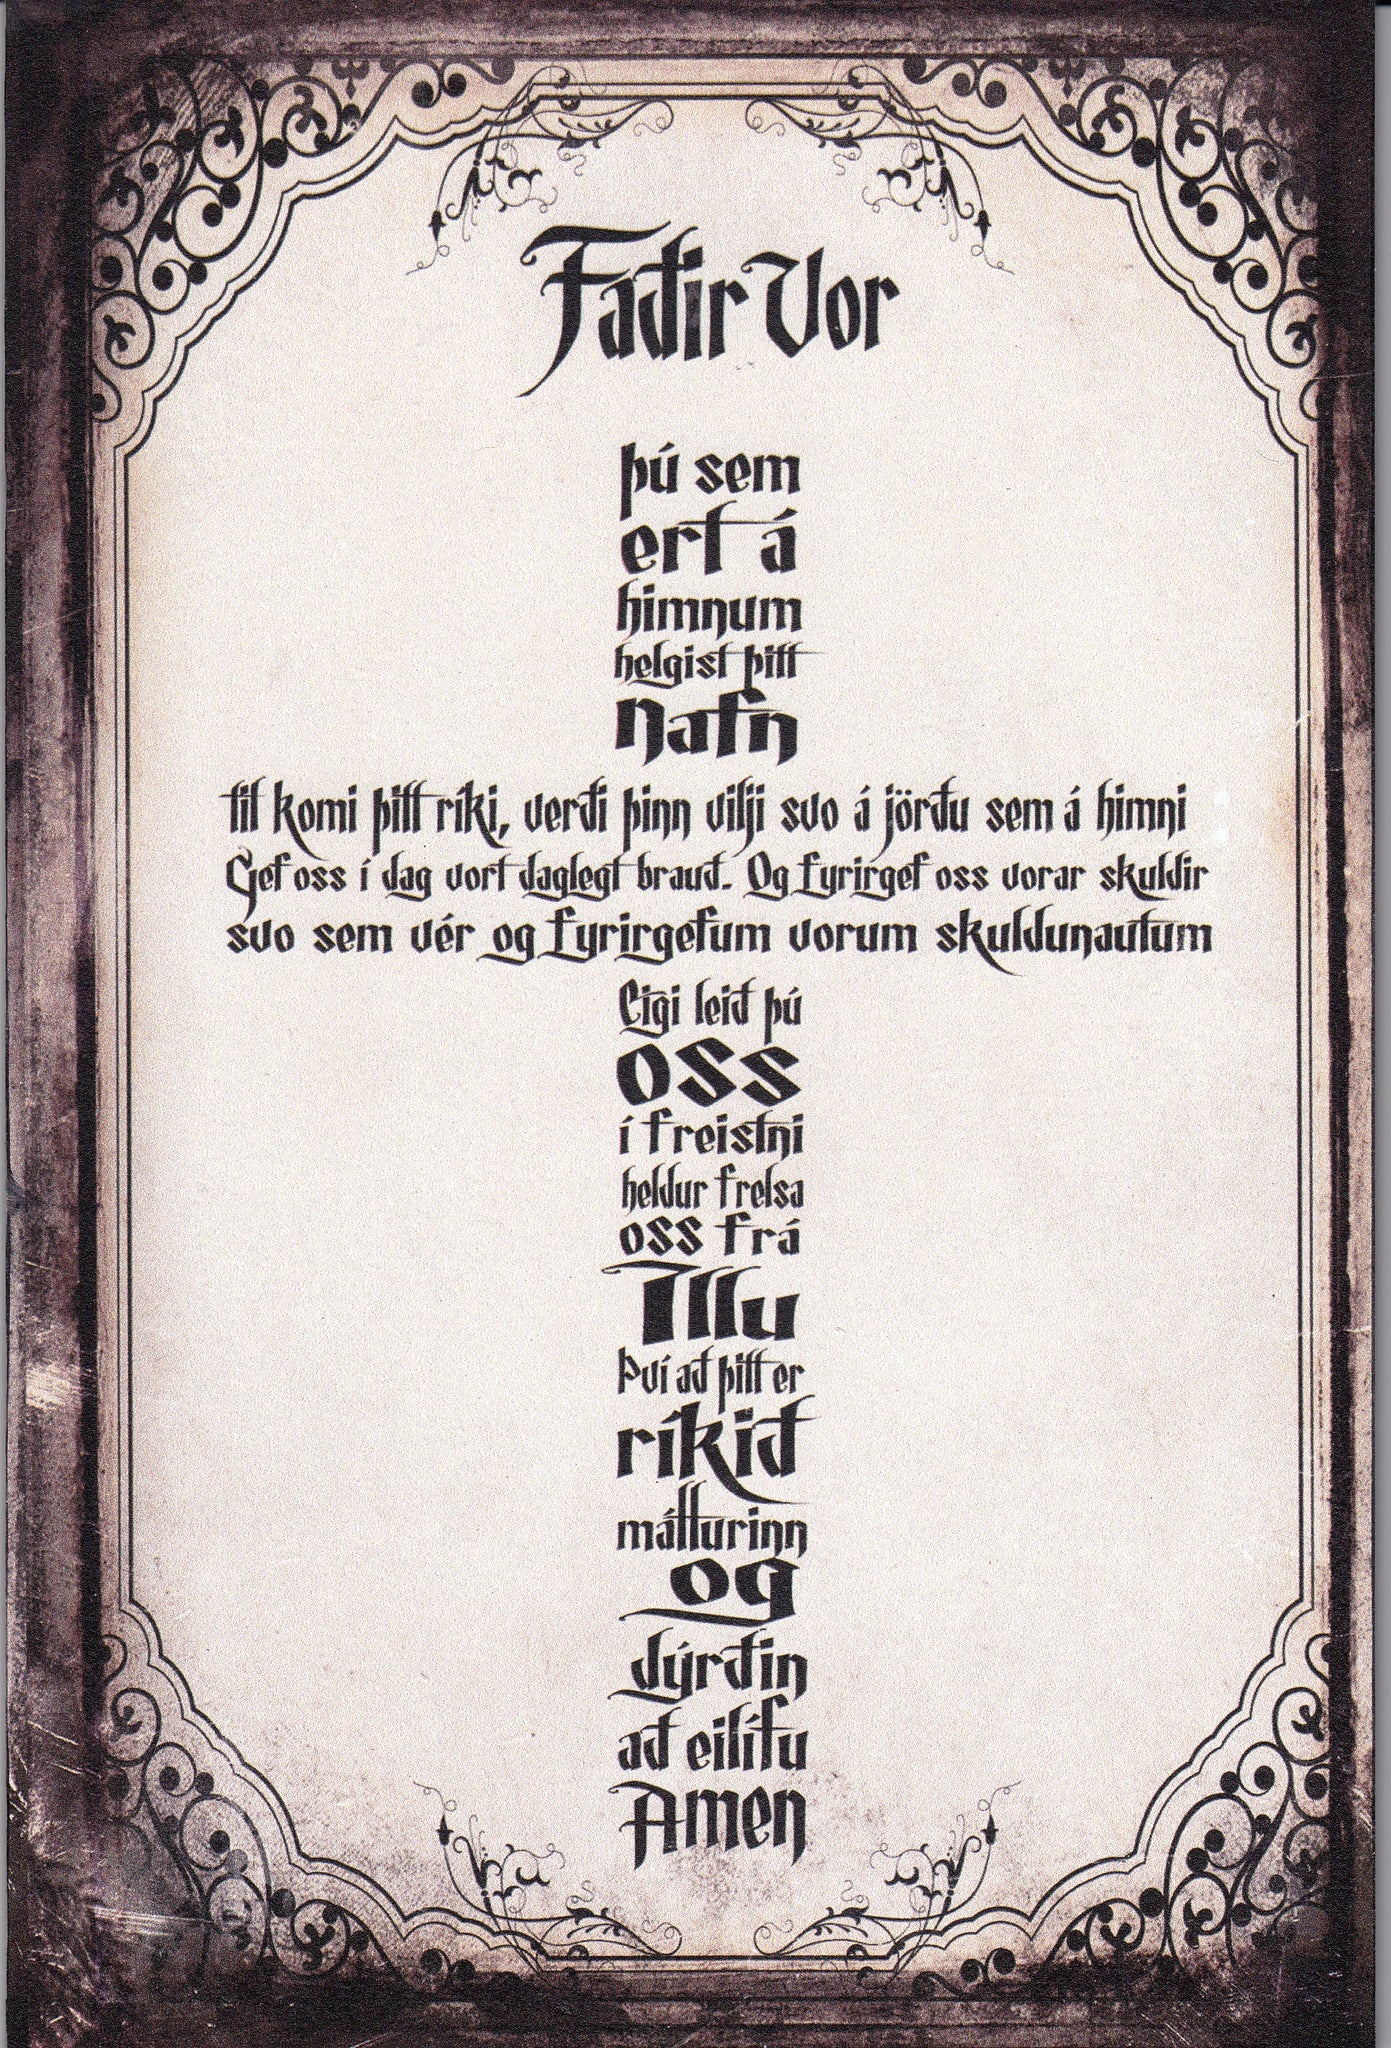 Faðir Vor
þú sem
ert á
himnum
helgist þitt
Nafn
til komi þitt ríki, verði þinn vilji svo á jörðu sem á himni
Gef oss í dag vort daglegt brauð. Og fyrirgef oss vorar skuldir
svo sem vér og fyrirgefum vorum skuldunautum
Eigi leið þú
oss
í freistni
heldur frelsa
oss frá
Illu
Því að þitt er
ríkið
mátturinn
og
dýrðin
að eilífu
Amen